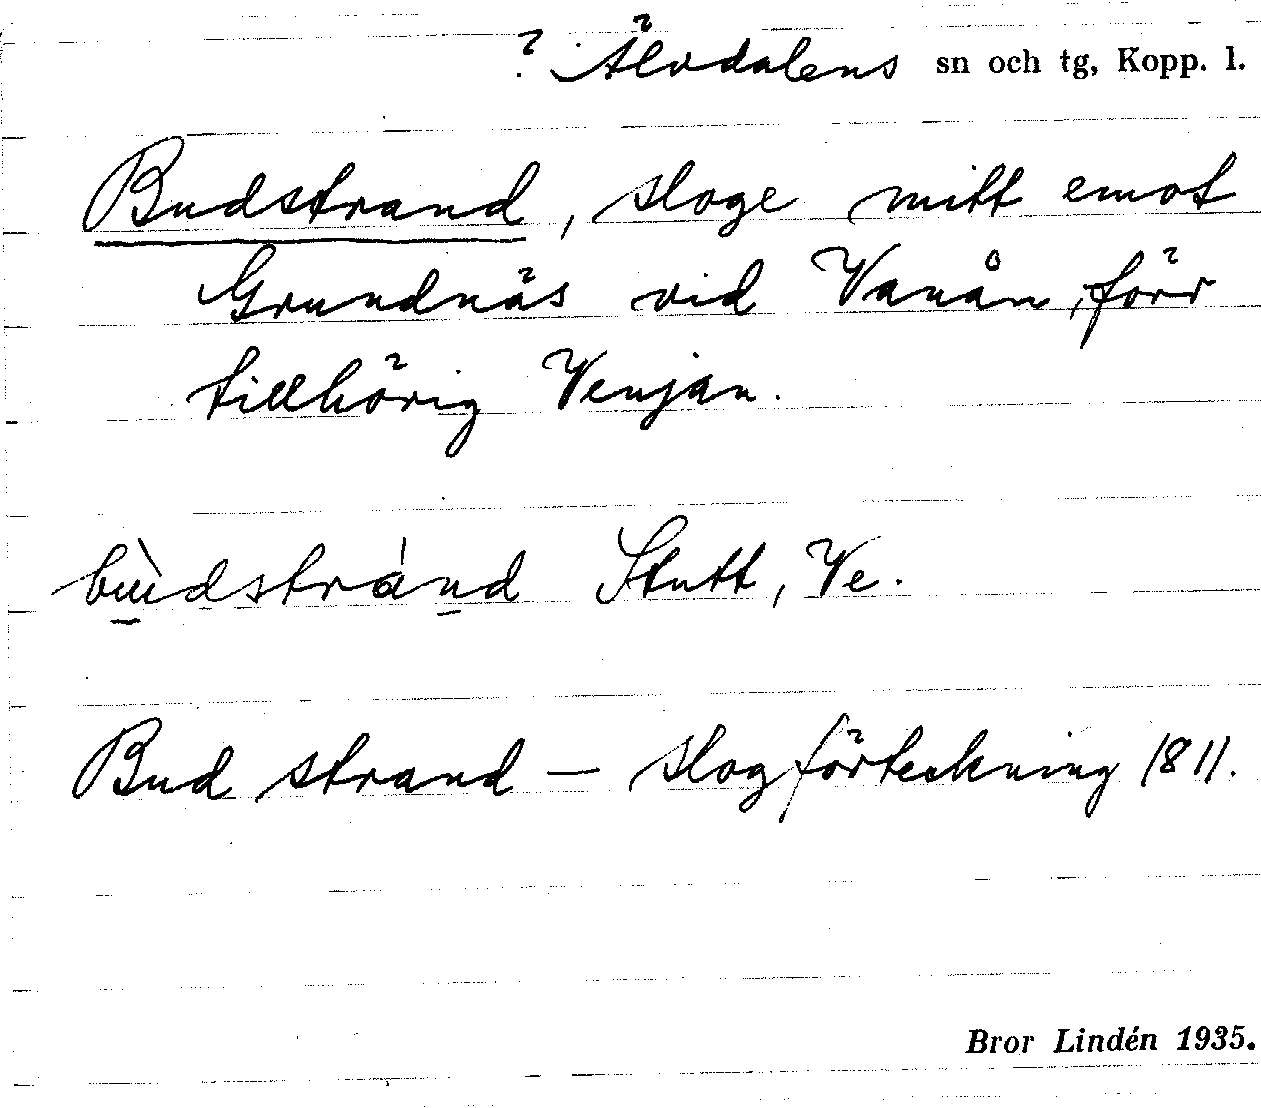 ? Älvdalens sn och tg, Kopp. l.
Budstrand, sloge mitt emot
Grundnäs vid Vanån, förr
tillhörig Venjan.
bùdstránd Stutt, Ve.
Bud strand — slogförteckning 1811.
Bror Lindén 1935.